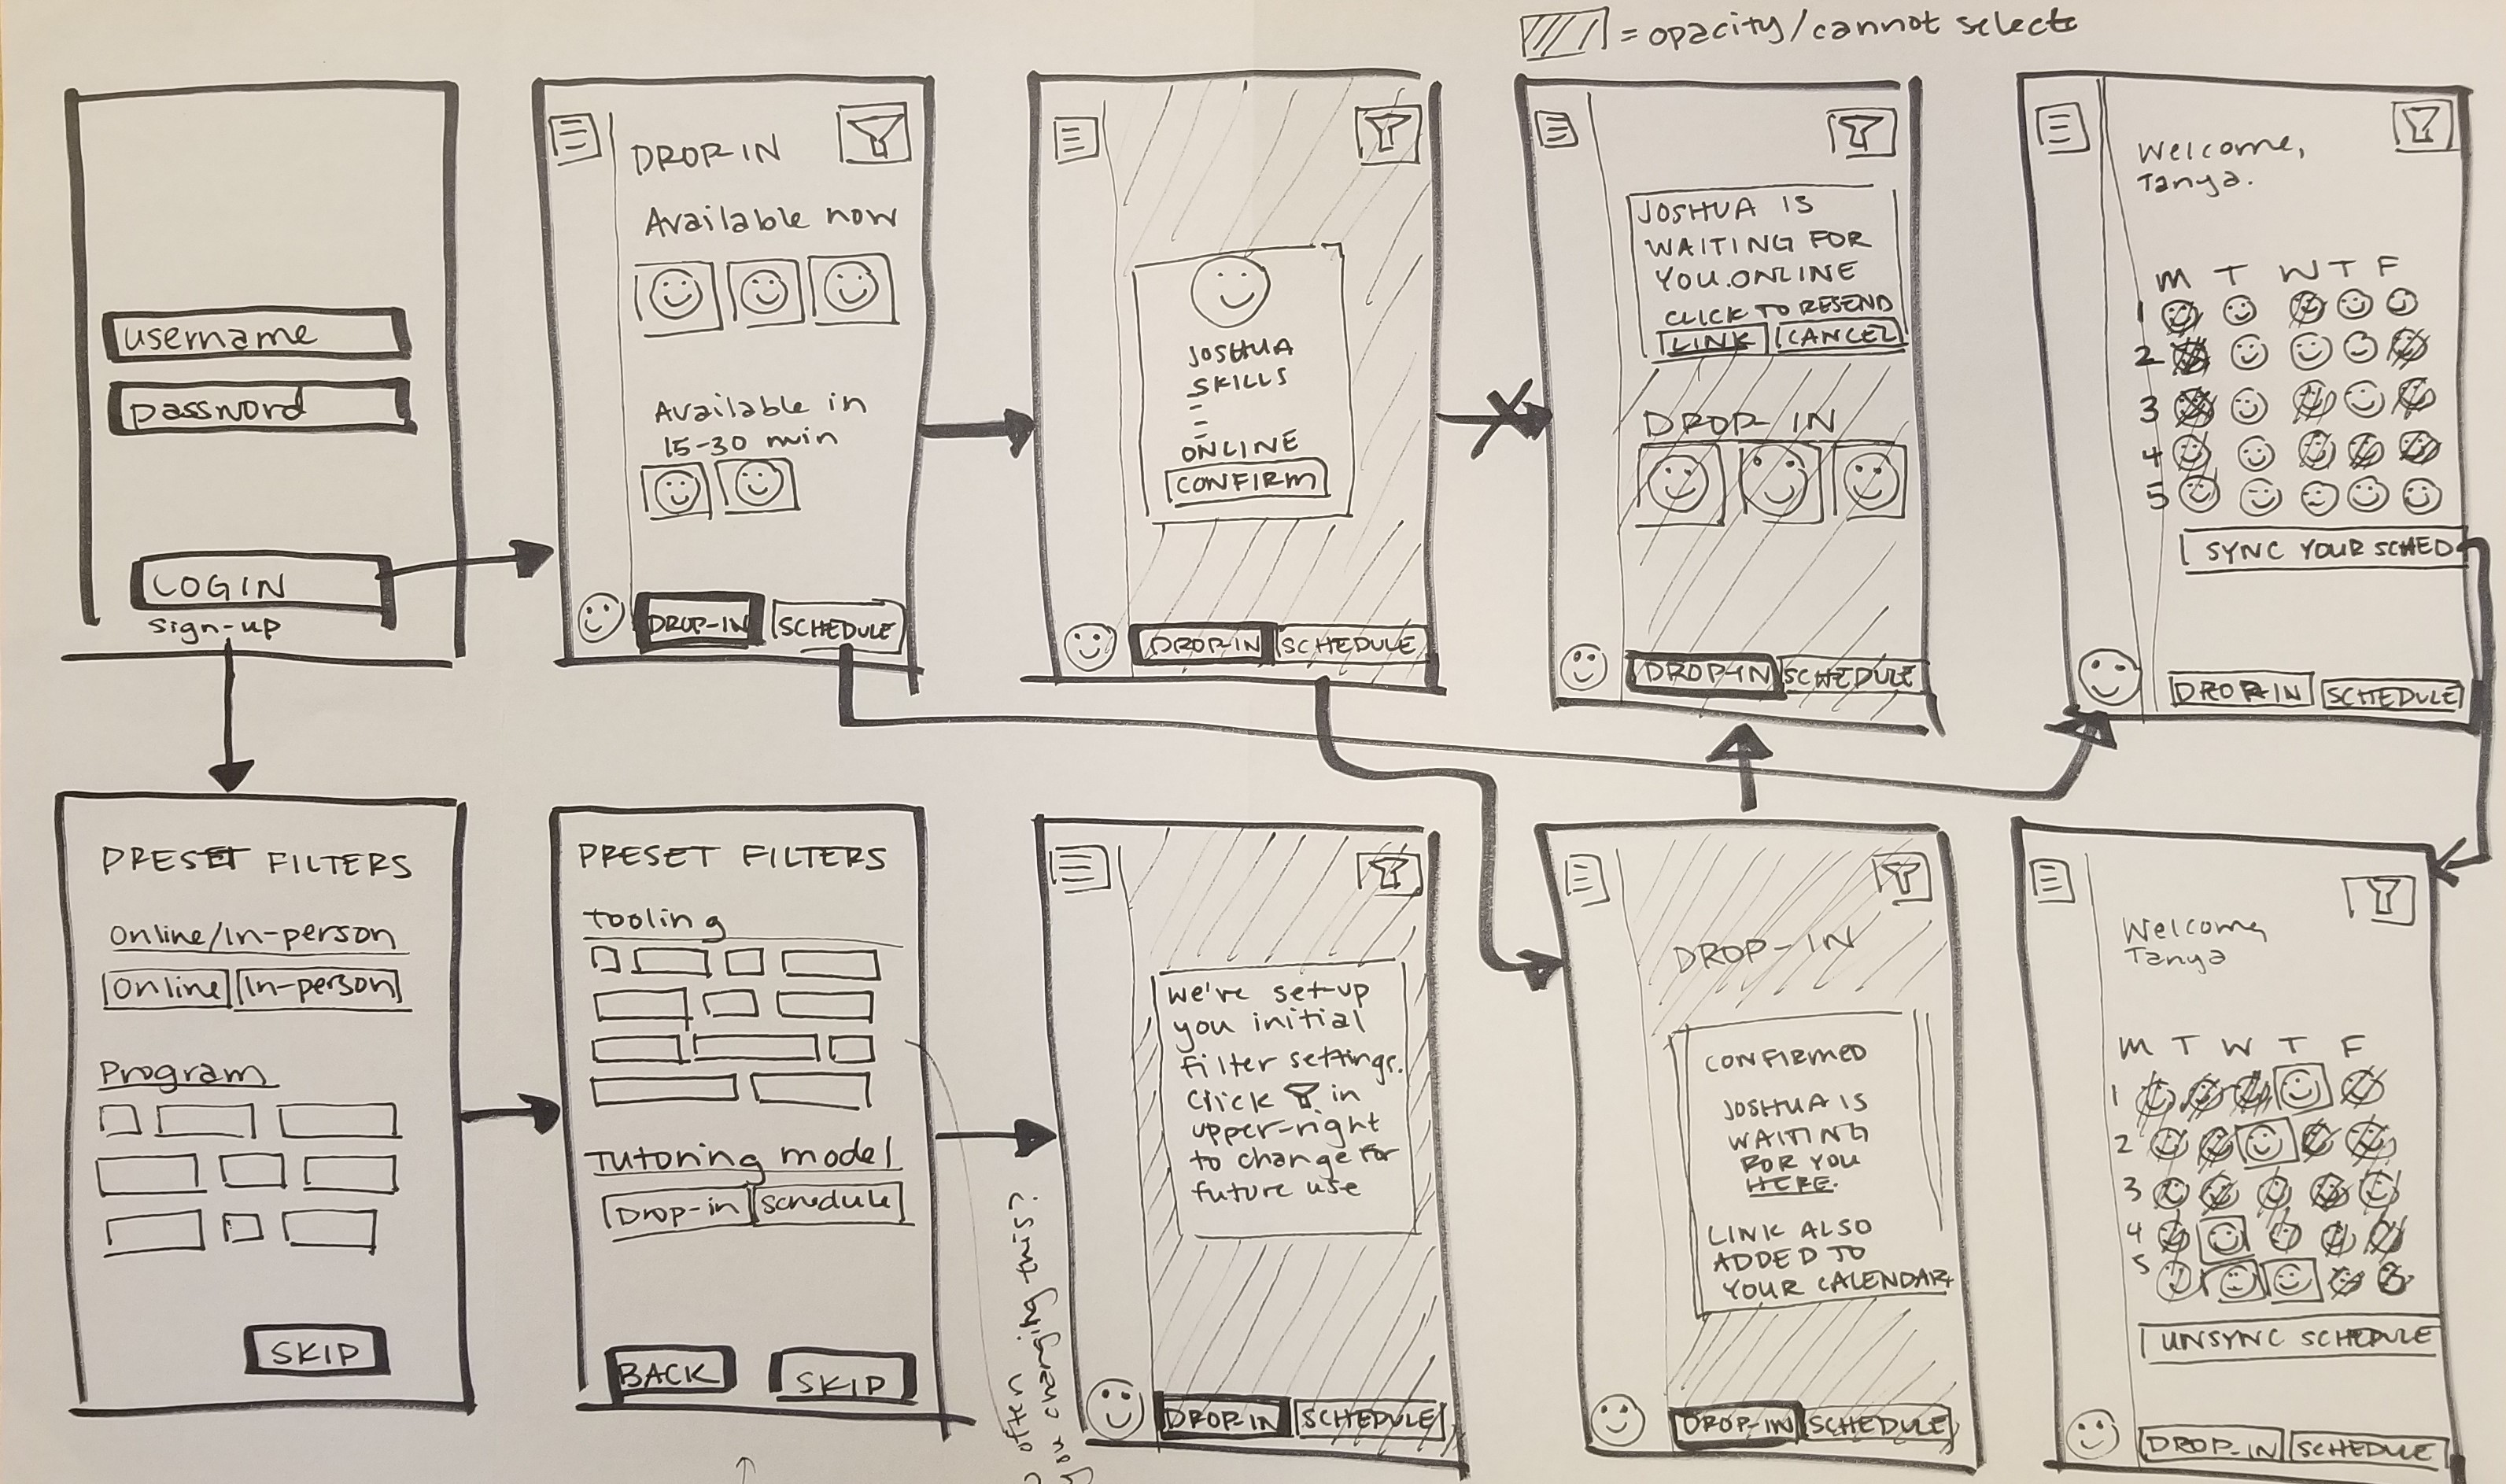 = opacity/cannot select
username
password
LOGIN
sign-up
DROP-IN
Available now
Available in
15-30 min
DROP-IN
SCHEDULE
JOSHUA
SKILLS
-
-
-
ONLINE
CONFIRM
DROP-IN
SCHEDULE
JOSHUA IS
WAITING FOR
YOU.ONLINE
CLICK TO RESEND
LINK
CANCEL
DROP-IN
DROP-IN
SCHEDULE
Welcome,
Tanya.
M T W T F
1
2
3
4
5
SYNC YOUR SCHED
DROP-IN
SCHEDULE
PRESET FILTERS
Online/In-person
Online
In-person
Program
SKIP
PRESET FILTERS
Tooling
Tutoring model
Drop-in
Schedule
BACK
SKIP
often
you changing this?
We've set-up
you initial
filter settings.
Click in
upper-right
to change for
future use
DROP-IN
SCHEDULE
DROP-IN
CONFIRMED
JOSHUA IS
WAITING
FOR YOU
HERE.
LINK ALSO
ADDED TO
YOUR CALENDAR
DROP-IN
SCHEDULE
Welcome,
Tanya
M T W T F
1
2
3
4
5
UNSYNC SCHEDULE
DROP-IN
SCHEDULE